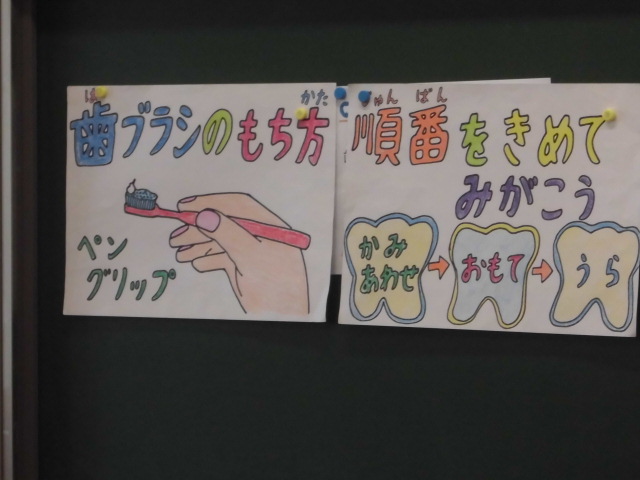 は かた
歯ブラシのもち方
ペン
グリップ
じゅん ばん
順番をきめて
みがこう
かみ
あわせ
おもて
うら